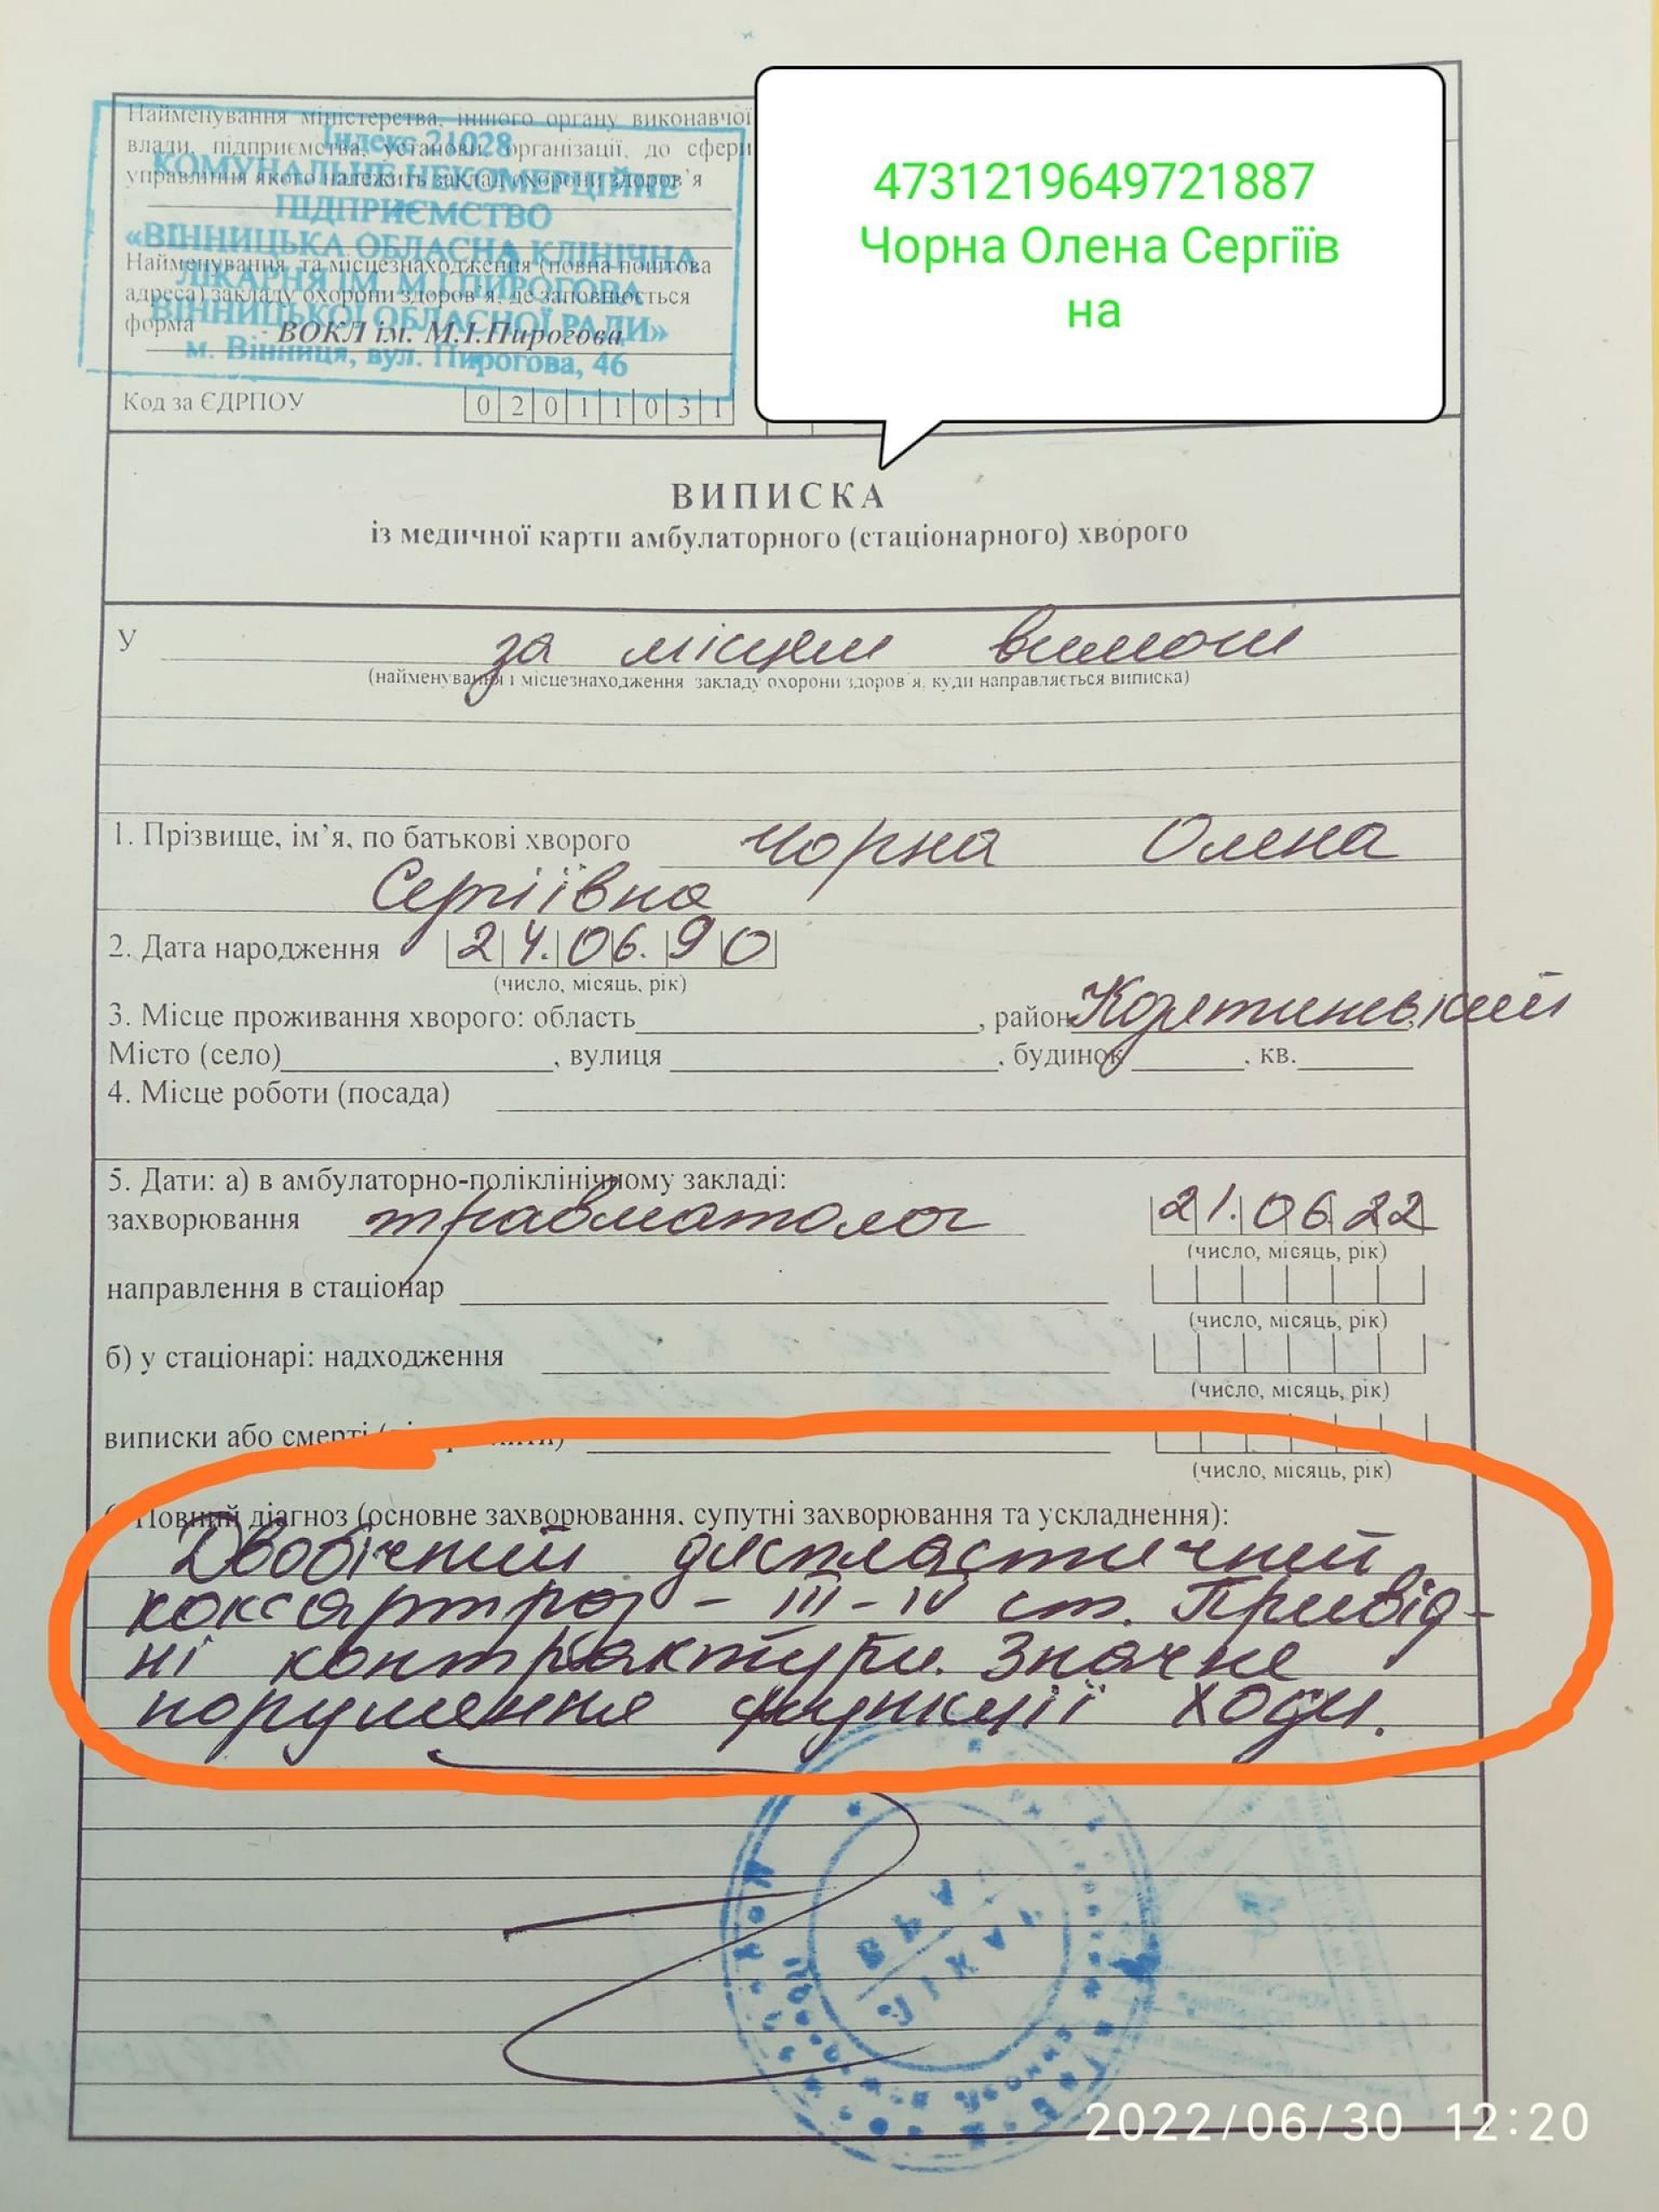 4731219649721887
Чорна Олена Сергіїв
на
Найменування міністерства, іншого органу виконавчої
влади, підприємства, установи, організації, до сфери
управління якого належить заклад охорони здоров’я
Індекс 21028
КОМУНАЛЬНЕ НЕКОМЕРЦІЙНЕ
ПІДПРИЄМСТВО
«ВІННИЦЬКА ОБЛАСНА КЛІНІЧНА
ЛІКАРНЯ ІМ. М.І.ПИРОГОВА
ВІННИЦЬКОЇ ОБЛАСНОЇ РАДИ»
м. Вінниця, вул. Пирогова, 46
Найменування та місцезнаходження (повна поштова
адреса) закладу охорони здоров’я, де заповнюється
форма ВОКЛ ім. М.І.Пирогова
Код за ЄДРПОУ 02011031
ВИПИСКА
із медичної карти амбулаторного (стаціонарного) хворого
У за місцем вимоги
(найменування і місцезнаходження закладу охорони здоров’я, куди направляється виписка)
1. Прізвище, ім’я, по батькові хворого Чорна Олена
Сергіївна
2. Дата народження 24.06.90
(число, місяць, рік)
3. Місце проживання хворого: область, район
Місто (село), вулиця, будинок, кв.
4. Місце роботи (посада)
5. Дати: а) в амбулаторно-поліклінічному закладі:
захворювання травматолог 21.06.22
(число, місяць, рік)
направлення в стаціонар
(число, місяць, рік)
б) у стаціонарі: надходження
(число, місяць, рік)
виписки або смерті
(число, місяць, рік)
Повний діагноз (основне захворювання, супутні захворювання та ускладнення):
Двобічний диспластичний
коксартроз - III-IV ст. Привід-
ні контрактури. Значне
порушення функції ходи.
2022/06/30 12:20